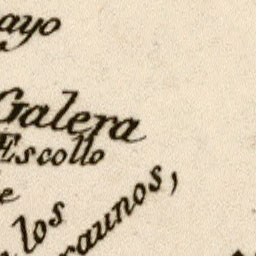 ayo
Galera
Escollo
e
los
raunos,